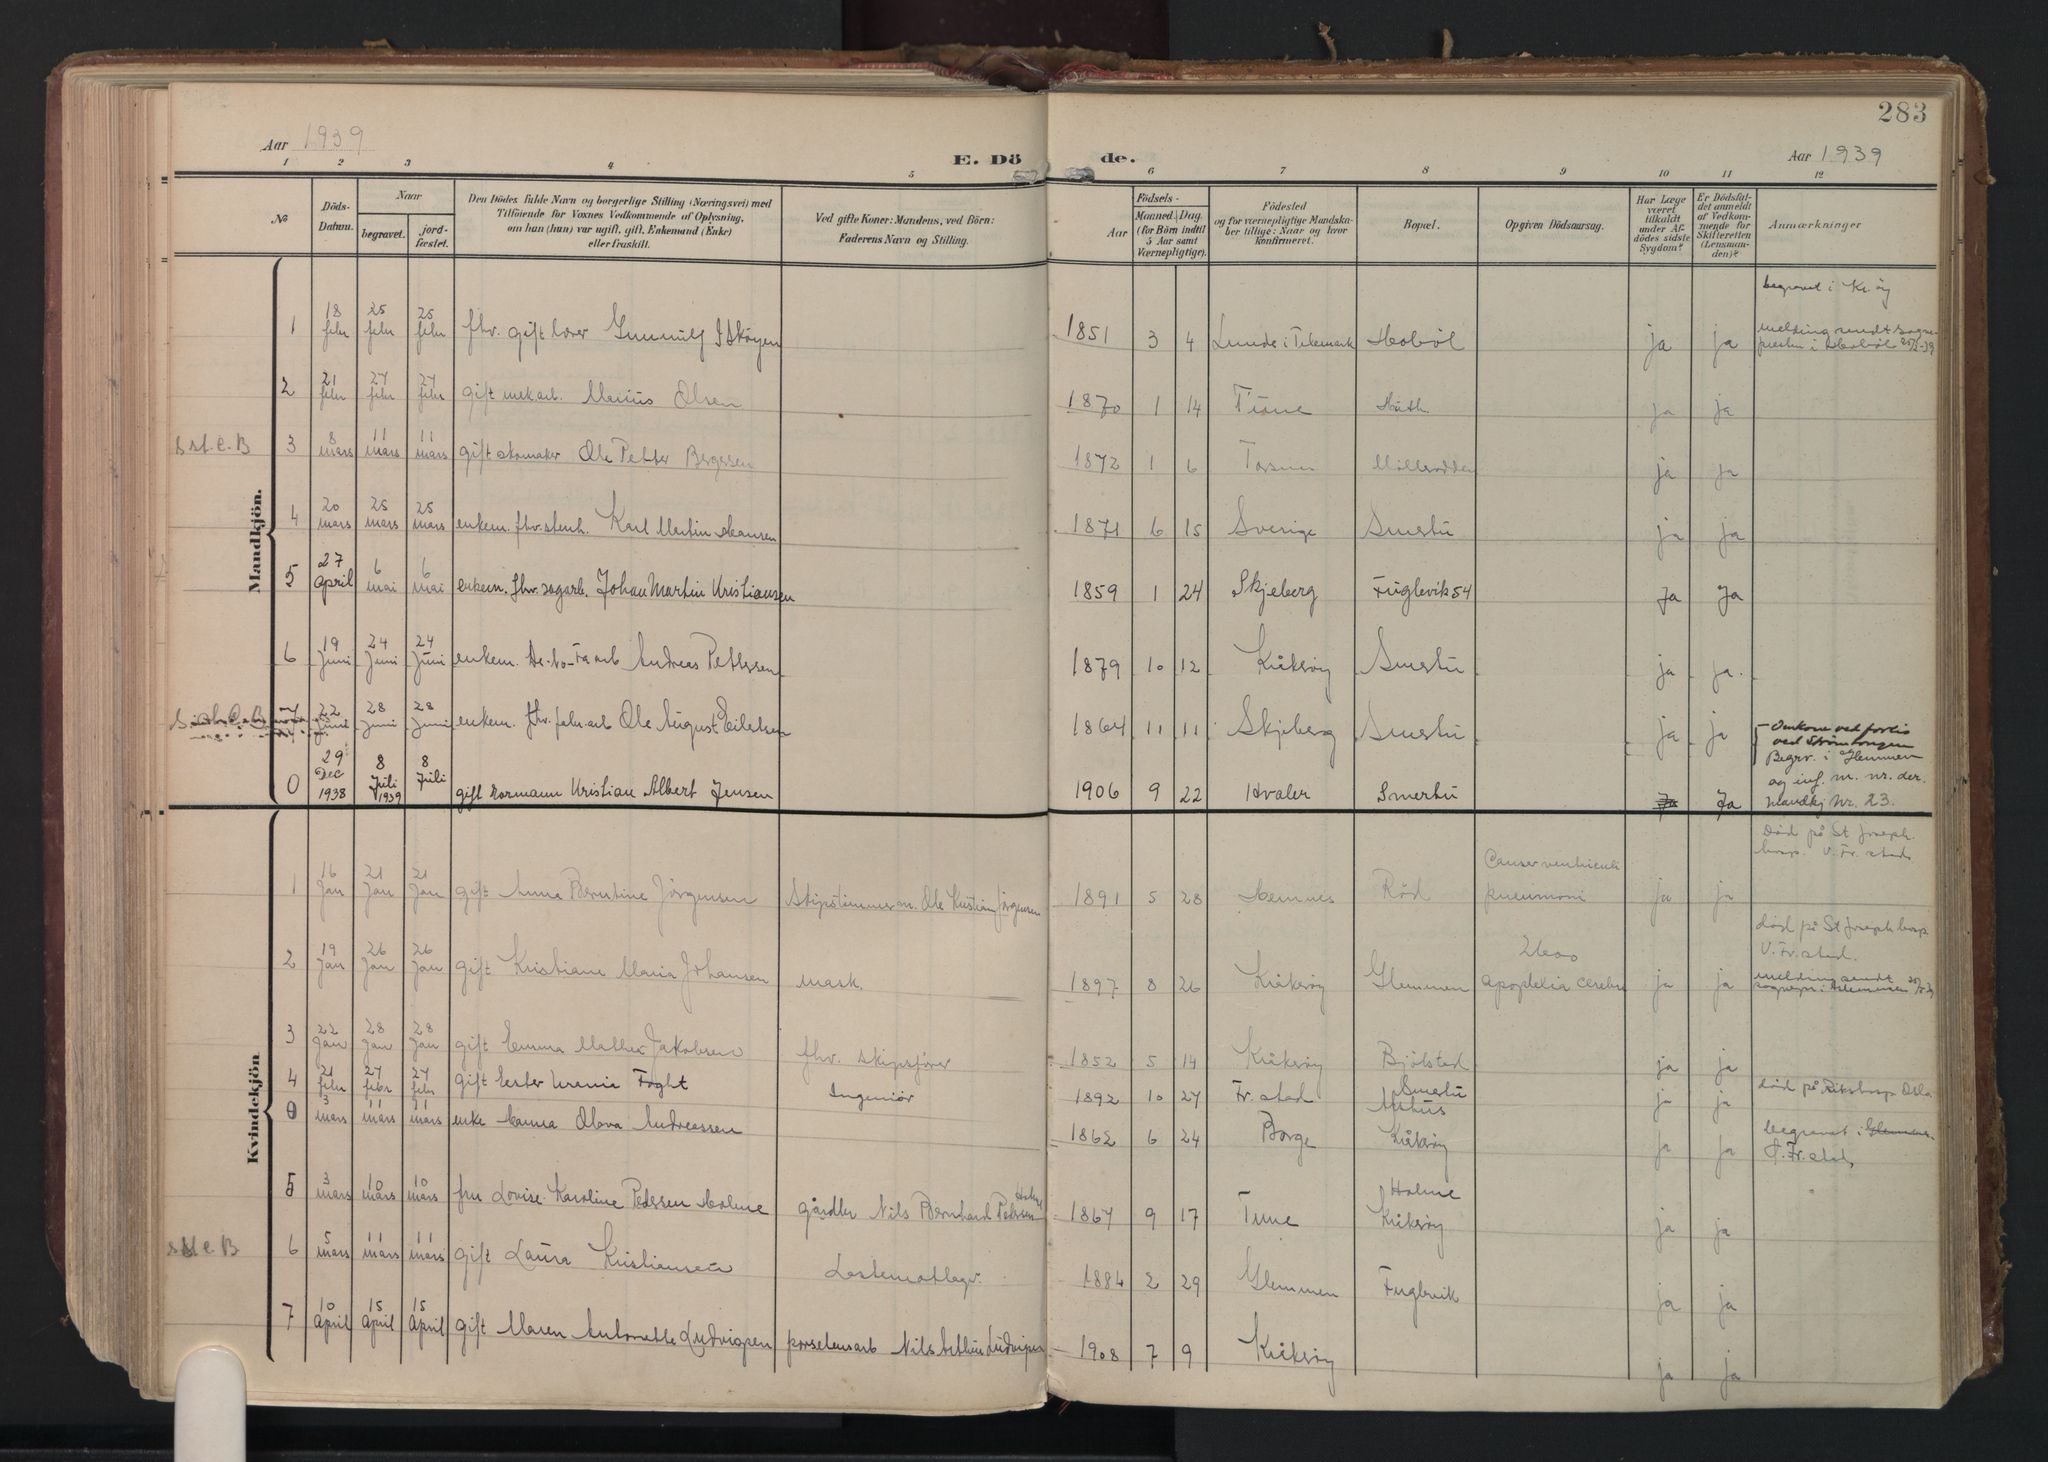 283
Aar 1939
E. Dö
de.
Aar 1939
1 2 3 4 5 6 7 8 9 10 11 12
№
Döds-
Datum.
Naar
begravet.
jord-
fæstet.
Den Dödes fulde Navn og borgerlige Stilling (Næringsvei) med
Tilföiende for Voxnes Vedkommende af Oplysning,
om han (hun) var ugift, gift, Enkemand (Enke)
eller fraskilt.
Ved gifte Koner: Mandens, ved Börn:
Faderens Navn og Stilling.
Födsels-
Aar
Maaned. Dag.
(for Börn indtil
5 Aar samt
Værnepligtige).
Födested
og for værnepligtige Mandska-
ber tillige: Naar og hvor
konfirmeret.
Bopæl.
Opgiven Dödsaarsag.
Har Læge
været
tilkaldt
under Af-
dödes sidste
Sygdom?
Er Dödsfal-
det anmeldt
af Vedkom-
mende for
Skifteretten
(Lensman-
den)?
Anmærkninger
Mandkjön.
begravet i Kr. øy
1 18 febr 25 febr 25 febr fhv. gift lærer 1851 3 4 Lunde i Telemark Hobøl ja ja melding sendt sogne-
presten i Hobøl
2 21 febr 27 febr 27 febr gift mek.arb. Marius Olsen 1870 1 14 Tune Huth. ja ja
3 8 mars 11 mars 11 mars gift skomaker Ole Petter Bergersen 1872 1 6 Torsnes ja ja
4 20 mars 25 mars 25 mars enkem. fhv. stenh. Karl Martin Hansen 1871 6 15 Sverige Smertu ja ja
5 27 april 6 mai 6 mai enkem. fhv. sagarb. Johan Martin Kristiansen 1859 1 24 Skjeberg Fuglevik 54 Ja Ja
6 19 Juni 24 Juni 24 Juni enkem. Andreas Pettersen 1879 10 12 Kråkerøy Smertu ja ja.
7 22 Juni 28 Juni 28 Juni enkem. fhv. fabr.arb Ole August Eilertsen 1864 11 11 Skjeberg Smertu ja ja
0 29 Dec 1938 8 Juli 1939 8 Juli gift normann Kristian Albert Jensen 1906 9 22 Hvaler Smertu Ja Ja
Omkom ved forlis
ved Strømtangen
Begrv. i Glemmen
og inf. m. nr. der.
Mandkj Nr. 23.
Kvindekjön.
Død på St Joseph.
hosp. v. Fr.stad
1 16 Jan 21 Jan 21 Jan gift Anna Berntine Jørgensen Skipstømmerm. Ole Kristian Jørgensen 1891 5 28 Hemnes Rød Cancer ventriculi
pneumoni ja ja
død på St Joseph hosp.
v. Fr.stad.
2 19 Jan 26 Jan 26 Jan gift Kristiane Maria Johansen mask. 1897 8 26 Kråkerøy Glemmen apoplexia cerebri ja ja melding sendt
3 22 Jan 28 Jan 28 Jan gift Emma Mathea Jakobsen fhv. skipsfører 1852 5 14 Kråkerøy Bjølstad ja ja
4 21 febr 27 febr 27 febr gift Ester Urania Foght Ingeniør 1892 10 27 Fr.stad Smertu ja ja død på Rikshosp. Oslo
0 3 mars 11 mars 11 mars enke Hanna Olava Andreassen 1862 6 24 Borge Kråkerøy ja ja begravet i Glemmen
Ø. Fr.stad
5 3 mars 10 mars 10 mars fru Lovise Karoline Pedersen Holme gårdbr Nils Bernhard Pedersen Holme 1867 9 17 Tune Holme
Kråkerøy ja ja
6 5 mars 11 mars 11 mars gift Laura Kristiansen 1884 2 29 Glemmen Fuglevik ja ja
7 10 april 15 april 15 april gift Maren Antonette Ludvigsen porselensarb Nils Arthur Ludvigsen 1908 7 9 Kråkerøy ja ja